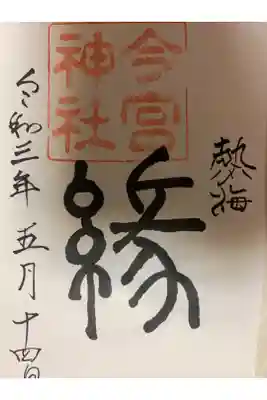 熱海
今宮
神社
縁
令和三年 五月 十四日